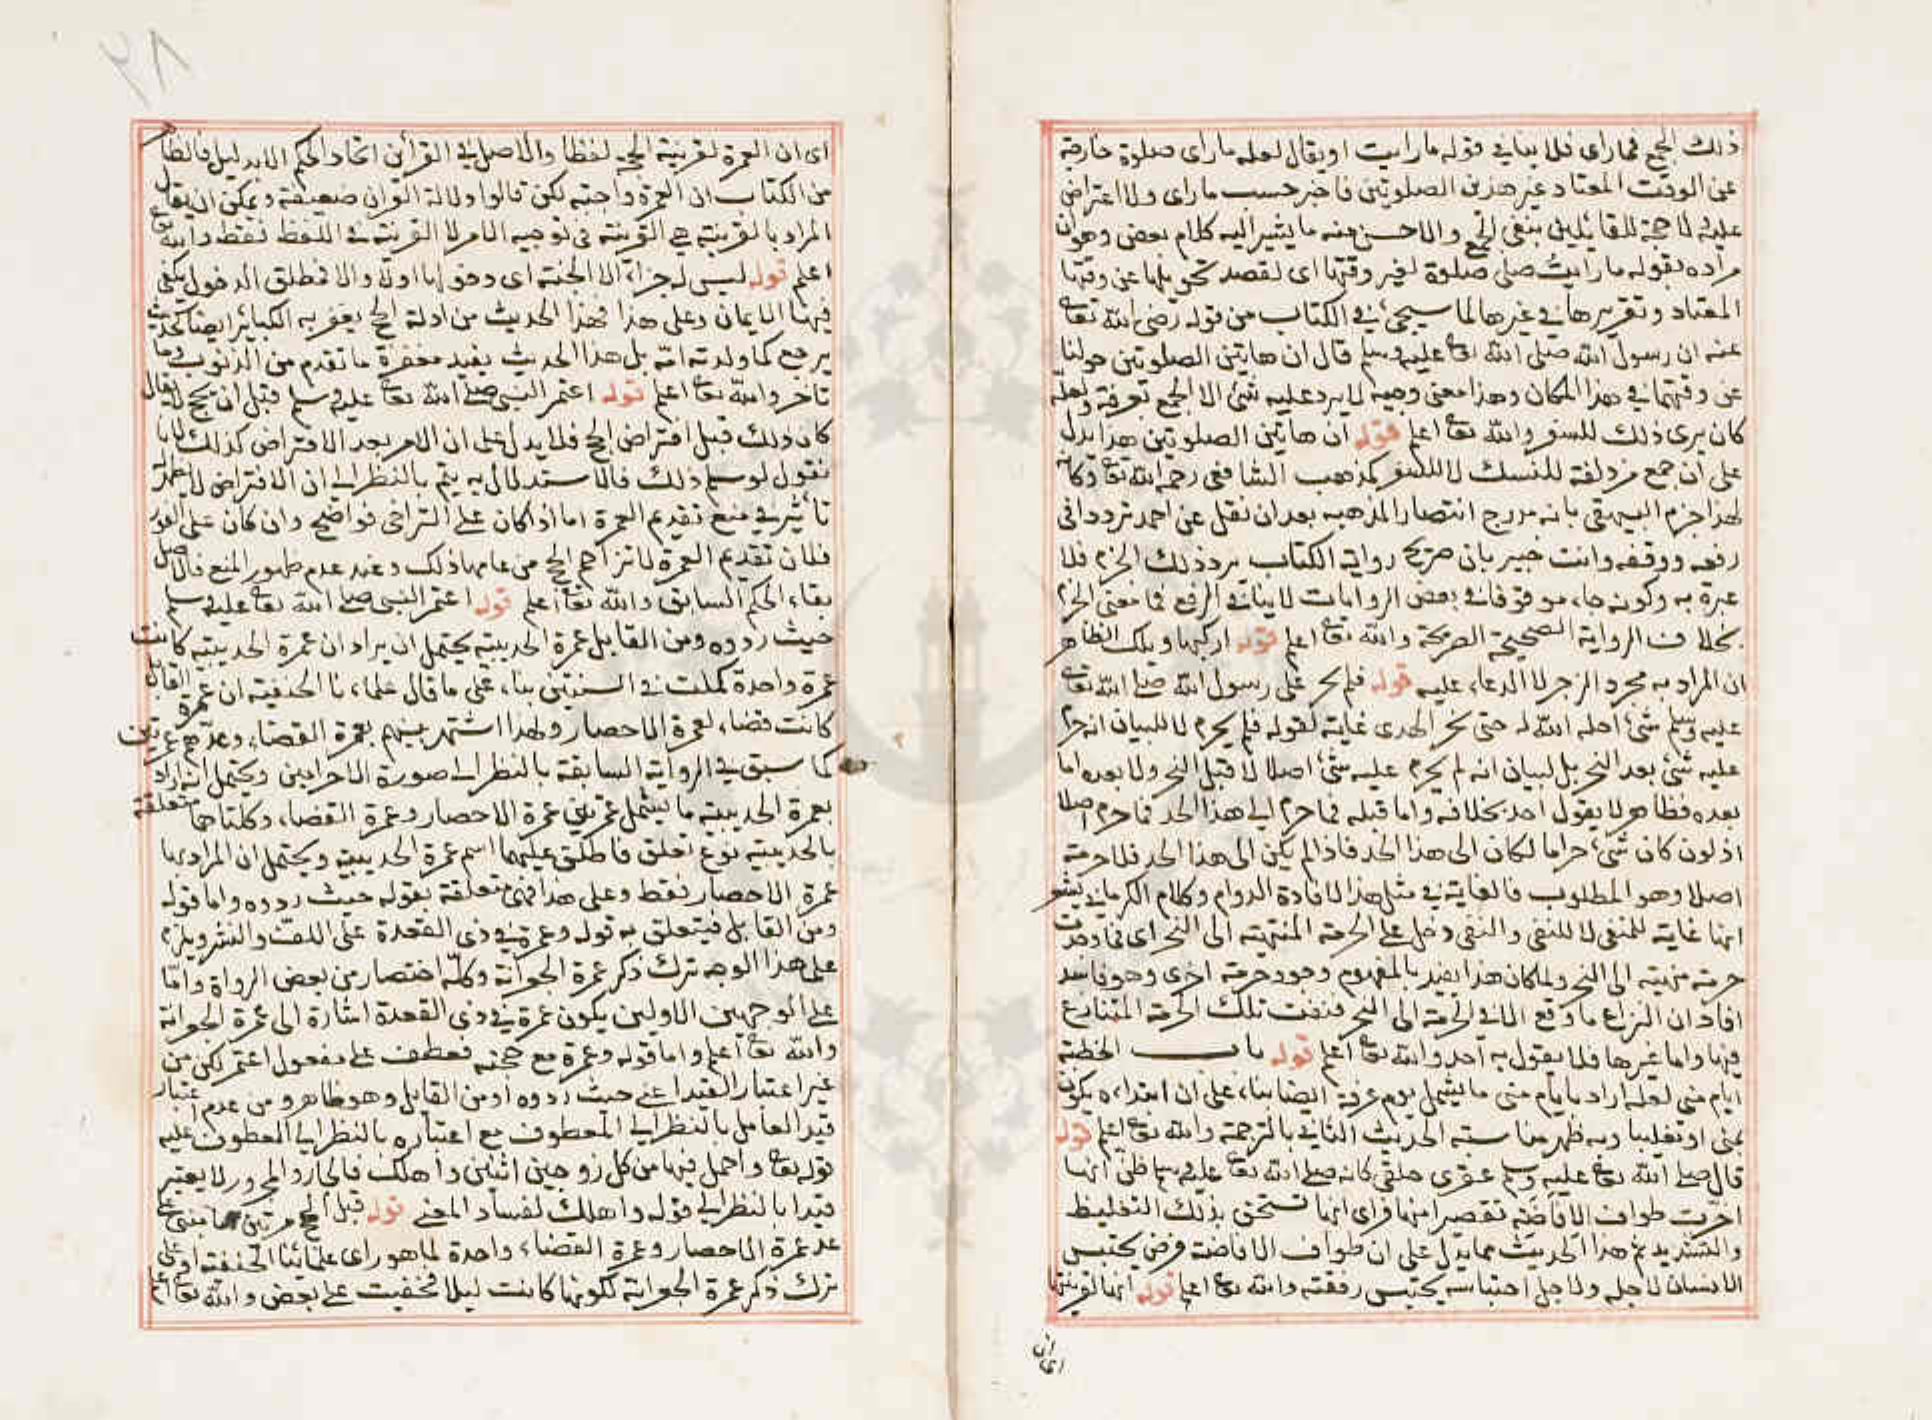 ذلك الجمع فما راى فلا ينافي قوله ما رايت او يقال لعله ما راى صلوة خارجة
عن الوقت المعتاد غير هذين الصلوتين فاخبر حسب ما راى ولا اعتراض
عليه فلا حجة للقائلين بنفي الجمع والاحسن منه ما يشير اليه كلام بعض وهو ان
مراده بقوله ما رايت صلى صلوة لغير وقتها اى لقصد تحويلها عن وقتها
المعتاد وتقريرها في غيرها لما سيجيء في الكتاب من قوله رضي الله تعالى
عنه ان رسول الله صلى الله تعالى عليه وسلم قال ان هاتين الصلوتين حولتا
عن وقتهما في هذا المكان وهذا معنى وجيه لا يرد عليه شئ الا الجمع بعرفة ولعله
كان يرى ذلك للسفر والله تعالى اعلم قوله ان هاتين الصلوتين هذا يدل
على ان جمع مزدلفة للنسك لا للسفر كمذهب الشافعى رحمه الله تعالى وكانه
لهذا جزم البيهقى بانه مدرج انتصارا لمذهبه بعد ان نقل عن احمد ترددا فى
رفعه ووقفه وانت خبير بان صريح رواية الكتاب يرد ذلك الجزم فلا
عبرة به وكونه جاء موقوفا في بعض الروايات لا ينافي الرفع فما معنى الجزم
بخلاف الرواية الصحيحة الصريحة والله تعالى اعلم قوله اركبها ويلك الظاهر
ان المراد به مجرد الزجر لا الدعاء عليه قوله فلم يحرم على رسول الله صلى الله تعالى
عليه وسلم شئ احله الله له حتى نحر الهدى غاية لقوله فلم يحرم لا للبيان انه حرم
عليه شئ بعد النحر بل لبيان انه لم يحرم عليه شئ اصلا لا قبل النحر ولا بعده اما
بعده فظاهر لا يقول احد بخلافه واما قبله فما حرم الى هذا الحد فما حرم اصلا
اذ لو كان شئ حراما لكان الى هذا الحد فاذا لم يكن الى هذا الحد فلا حرمة
اصلا وهو المطلوب فالغاية في مثل هذا لافادة الدوام وكلام الكرماني يشعر
انها غاية للمنفى لا للنفى والنفى دخل على الحرمة المنتهية الى النحر اى فما وجدت
حرمة منتهية الى النحر ولما كان هذا يفيد بالمفهوم وجود حرمة اخرى وهو فاسد
افاد ان النزاع ما وقع الا في الحرمة الى النحر فنفت تلك الحرمة المتنازع
فيها واما غيرها فلا يقول به احد والله تعالى اعلم قوله باب الخطبة
ايام منى لعله اراد بايام منى ما يشمل يوم عرفة ايضا بناء على ان ابتداءه يكون
بمنى او تغليبا وبه ظهر مناسبة الحديث الثاني بالترجمة والله تعالى اعلم قوله
قال صلى الله تعالى عليه وسلم عقرى حلقى كانه صلى الله تعالى عليه وسلم ظن انها
اخرت طواف الافاضة تقصيرا منها فراى انها تستحق بذلك التغليظ
والتشديد ثم هذا الحديث مما يدل على ان طواف الافاضة فرض يحتبس
الانسان لاجله ولاجل احتباسه يحتبس رفقته والله تعالى اعلم قوله انها لقرينتها
اى ان
٢٨
اى ان العمرة لقرينة الحج لفظا والاصل في القرائن اتحاد الحكم الا بدليل فالظاهر
من الكتاب ان العمرة واجبة لكن قالوا دلالة القران ضعيفة ويمكن ان يقال
المراد بالقرينة هي القرينة فى توجيه الامر لا القرينة في اللفظ فقط والله تعالى
اعلم قوله ليس له جزاء الا الجنة اى دخولها اولا والا فمطلق الدخول يكفى
فيها الايمان وعلى هذا فهذا الحديث من ادلة ان الحج يغفر به الكبائر ايضا كحديث
يرجع كما ولدته امه بل هذا الحديث يفيد مغفرة ما تقدم من الذنوب وما
تاخر والله تعالى اعلم قوله اعتمر النبى صلى الله تعالى عليه وسلم قبل ان يحج لا يقال
كان ذلك قبل افتراض الحج فلا يدل على ان الامر بعد الافتراض كذلك لانا
نقول لو سلم ذلك فالاستدلال به يتم بالنظر الى ان الافتراض لا يظهر له
تاثير في منع تقديم العمرة اما اذا كان على التراخى فواضح وان كان على الفور
فلان تقديم العمرة لا تزاحم الحج من عامها ذلك وعند عدم ظهور المنع فالاصل
بقاء الحكم السابق والله تعالى اعلم قوله اعتمر النبى صلى الله تعالى عليه وسلم
حيث ردوه ومن القابل عمرة الحديبية يحتمل ان يراد ان عمرة الحديبية كانت
عمرة واحدة كملت في السنتين بناء على ما قال علماءنا الحنفية ان عمرة القابل
كانت قضاء لعمرة الاحصار ولهذا اشتهر بينهم بعمرة القضاء وعدهم عمرتين
كما سبق في الرواية السابقة بالنظر الى صورة الاحرامين ويحتمل انه اراد
بعمرة الحديبية ما يشمل عمرتين عمرة الاحصار وعمرة القضاء وكلتاهما متعلقة
بالحديبية نوع تعلق فاطلق عليهما اسم عمرة الحديبية ويحتمل ان المراد بها
عمرة الاحصار فقط وعلى هذا فهى متعلقة بقوله حيث ردوه واما قوله
ومن القابل فيتعلق به قوله وعمرة في ذى القعدة على اللف والنشر ويلزم
على هذا الوجه ترك ذكر عمرة الجعرانة وكله اختصار من بعض الرواة واما
على الوجهين الاولين يكون عمرة في ذى القعدة اشارة الى عمرة الجعرانة
والله تعالى اعلم واما قوله وعمرة مع حجته فعطف على مفعول اعتمر لكن من
غير اعتبار القيد اعنى حيث ردوه او من القابل وهو ظاهر ومن عدم اعتبار
قيد العامل بالنظر الى المعطوف مع اعتباره بالنظر الى المعطوف عليه
قوله تعالى واحمل فيها من كل زوجين اثنين واهلك فالجار والمجرور لا يعتبر
قيدا بالنظر الى قوله واهلك لفساد المعنى قوله قبل الحج مرتين هذا مبنى على
عد عمرة الاحصار وعمرة القضاء واحدة لما هو راى علمائنا الحنفية او على
ترك ذكر عمرة الجعرانة لكونها كانت ليلا فخفيت على بعض والله تعالى اعلم